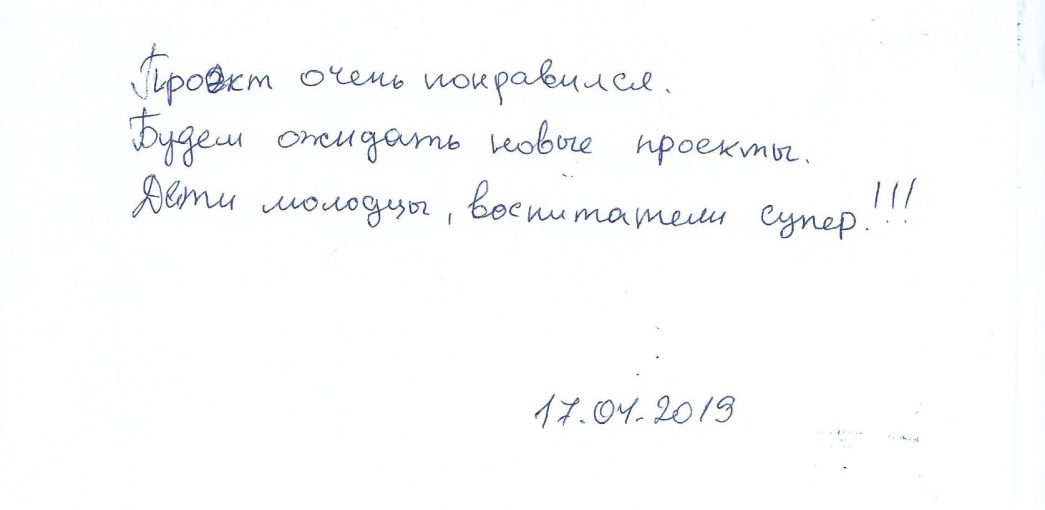 Проект очень понравился.
Будем ожидать новые проекты.
Дети молодцы, воспитатели супер!!!
17.04.2019